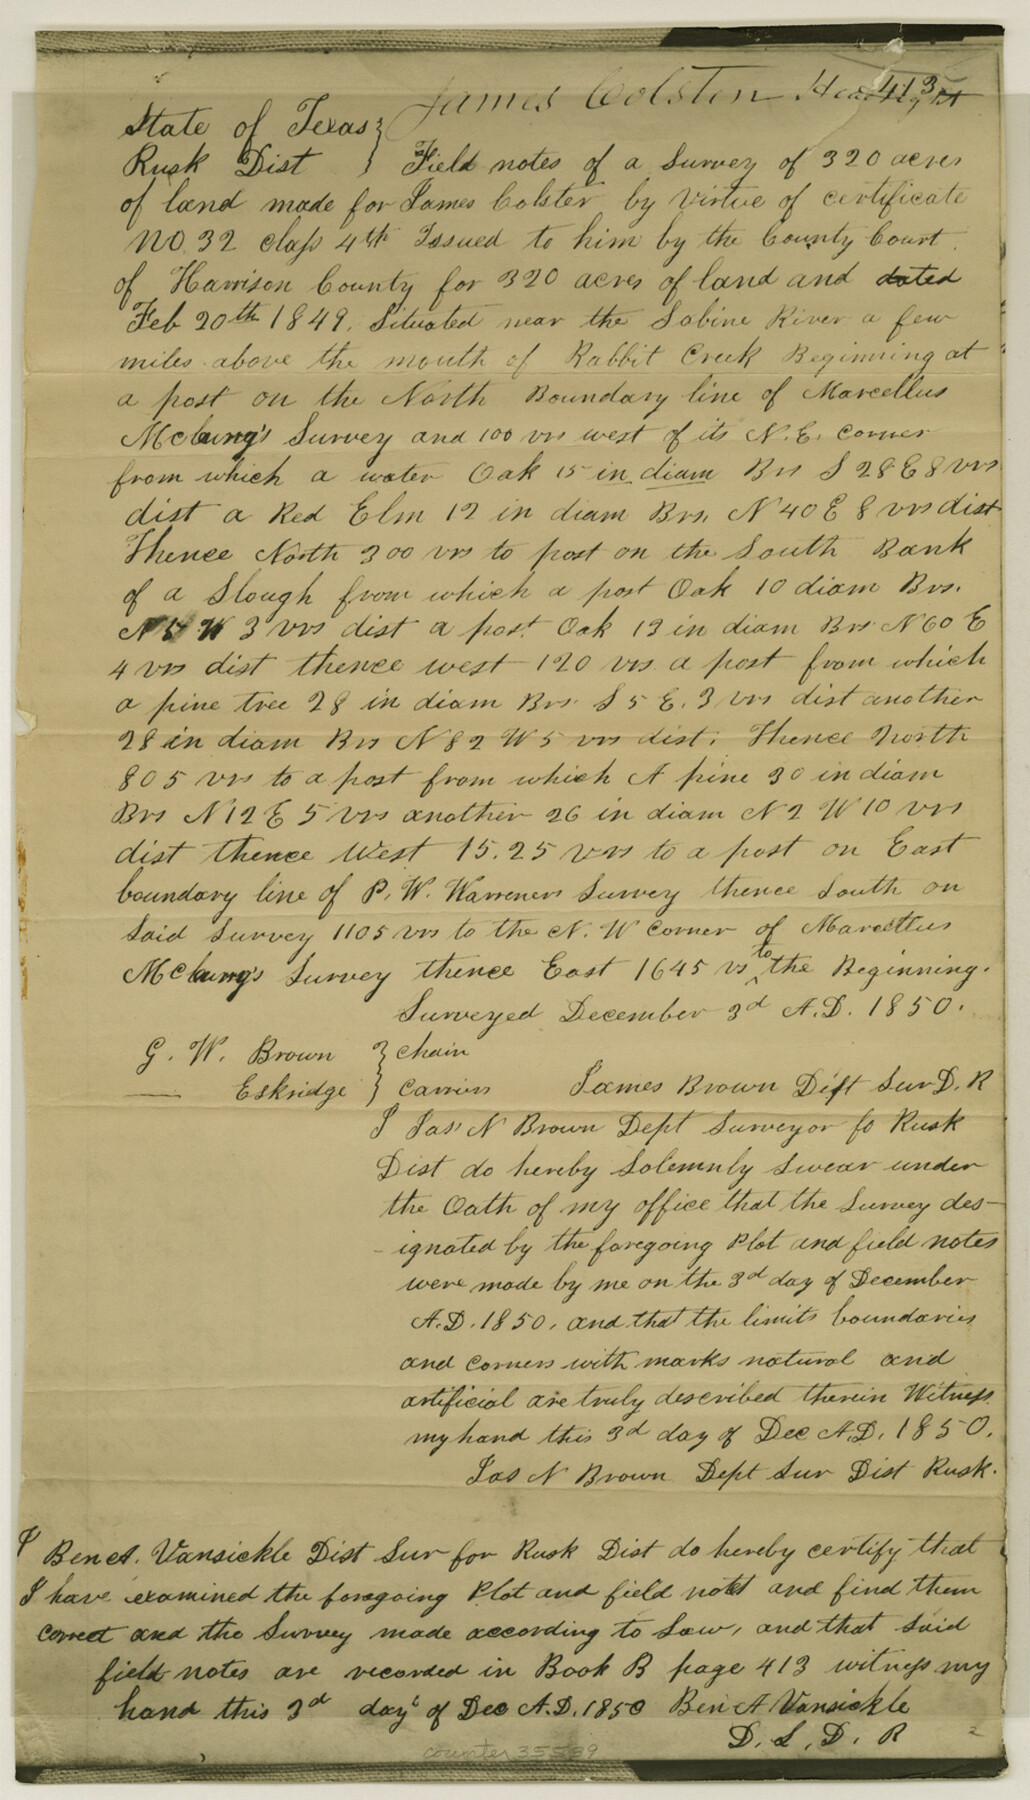 James Colston Headright 413
State of Texas }
Rusk Dist } Field notes of a Survey of 320 acres
of land made for James Colster by virtue of certificate
NO. 32 class 4th Issued to him by the County Court
of Harrison County for 320 acres of land and dated
Feb 20th 1849. Situated near the Sabine River a few
miles above the mouth of Rabbit Creek Beginning at
a post on the North Boundary line of Marcellus
Survey and 100 vrs west of its N.E. corner
from which a water Oak 15 in diam Brs S 28 E 8 vrs
dist a Red Elm 12 in diam Brs. N 40 E 8 vrs dist
Thence North 300 vrs to post on the South Bank
of a Slough from which a post Oak 10 diam Brs.
N 5 W 3 vrs dist a post Oak 13 in diam Brs N 60 E
4 vrs dist thence west 120 vrs a post from which
a pine tree 28 in diam Brs. S 5 E. 3 vrs dist another
28 in diam Brs N 82 W 5 vrs dist. Thence North
805 vrs to a post from which A pine 30 in diam
Brs N 12 E 5 vrs another 26 in diam N 2 W 10 vrs
dist thence West 15.25 vrs to a post on East
boundary line of P. W. Warreners Survey thence South on
said Survey 1105 vrs to the N. W corner of Marcellus
Survey thence East 1645 vs to the Beginning.
Surveyed December 3d A.D. 1850.
G. W. Brown } chain
— Eskridge } carriers James Brown Dist Sur D. R
I Jas N Brown Dept Surveyor fo Rusk
Dist do hereby Solemnly Swear under
the Oath of my office that the Survey des-
-ignated by the foregoing Plot and field notes
were made by me on the 3d day of December
A.D. 1850, and that the limits boundaries
and corners with marks natural and
artificial are truly described therein Witness
my hand this 3d day of Dec A.D. 1850.
Jas N Brown Dept Sur Dist Rusk.
I Ben A. Vansickle Dist Sur for Rusk Dist do hereby certify that
I have examined the foregoing Plot and field notes and find them
correct and the Survey made according to Law, and that said
field notes are recorded in Book B page 413 witness my
hand this 3d day of Dec A.D. 1850 Ben A Vansickle
D. S. D. R
2
counter 35539